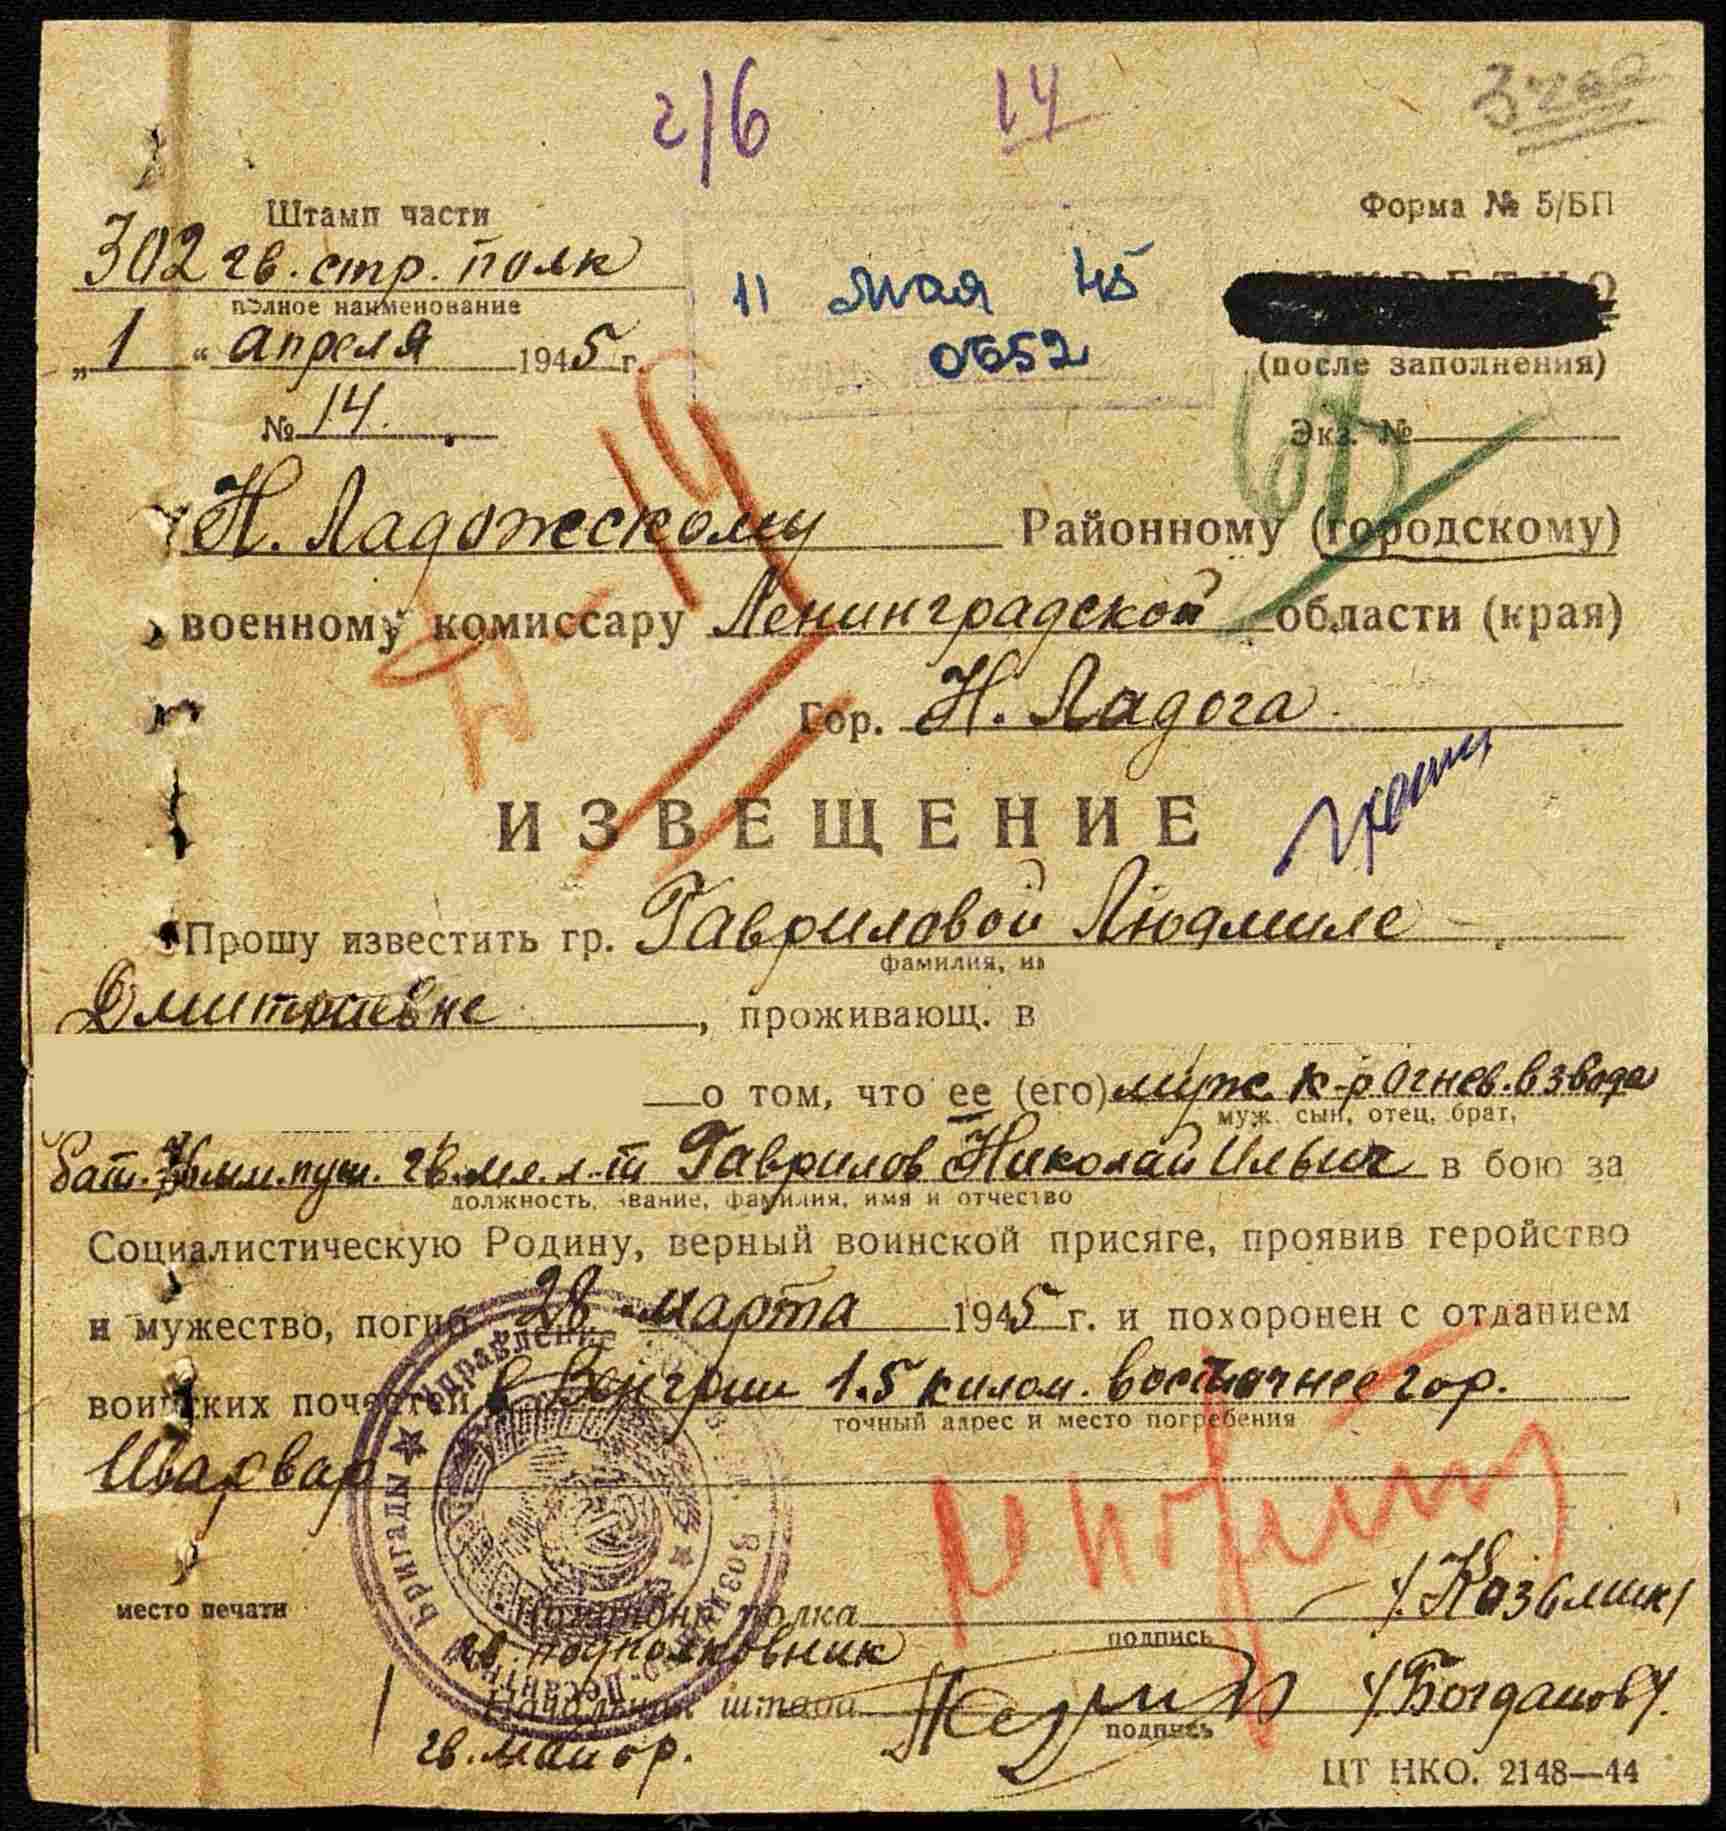 2/6 14 3200
Штамп части Форма № 5/БП
302 гв. стр. полк
полное наименование
11 мая 45
„1“ апреля 1945 г.
0552
(после заполнения)
№ 14. Экз. №
Н. Ладожскому Районному (городскому)
военному комиссару Ленинградской области (края)
Гор. Н. Ладога
ИЗВЕЩЕНИЕ
Прошу известить гр. Гавриловой Людмиле
фамилия, и
Дмитриевне, проживающ. в
о том, что ее (его) муж к-р огнев. взвода
муж. сын, отец, брат,
бат. пуш. гв. мл. л-т Гаврилов Николай Ильич в бою за
должность, звание, фамилия, имя и отчество
Социалистическую Родину, верный воинской присяге, проявив геройство
и мужество, погиб 28 марта 1945 г. и похоронен с отданием
воинских почестей в Венгрии 1.5 килом. восточнее гор.
точный адрес и место погребения
Шварвар
место печати
Командир полка /Козьмик/
гв. подполковник подпись
Начальник штаба /Богданов/.
гв. майор. подпись
ЦТ НКО. 2148—44